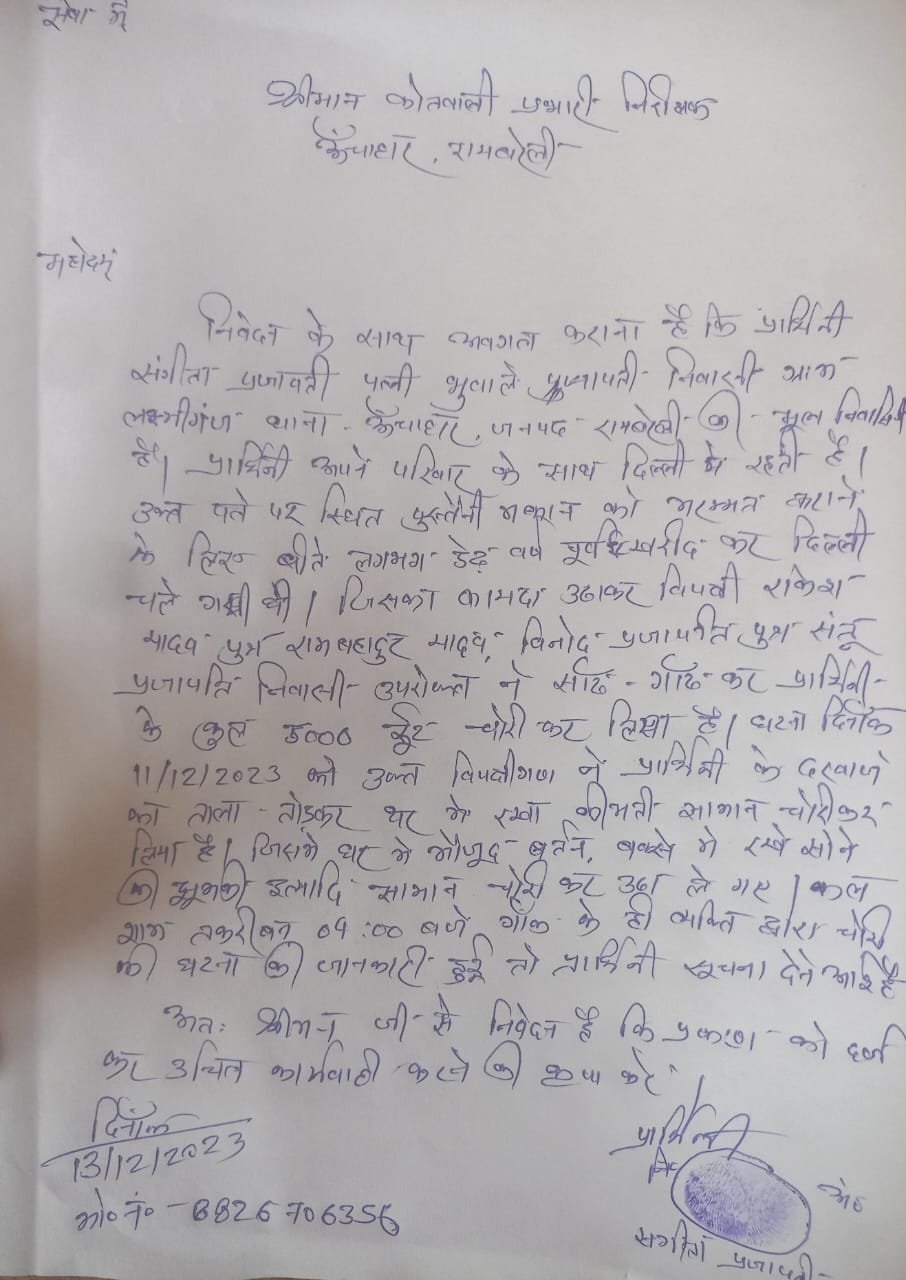 सेवा में
श्रीमान कोतवाली प्रभारी निरीक्षक
ऊँचाहार, रायबरेली
महोदय
निवेदन के साथ अवगत कराना है कि प्रार्थिनी
संगीता प्रजापती पत्नी भुवाले प्रजापती निवासनी ग्राम
लक्ष्मीगंज थाना - ऊँचाहार, जनपद रायबरेली की मूल निवासिनी
है। प्रार्थिनी अपने परिवार के साथ दिल्ली मे रहती है।
उक्त पते पर स्थित पुस्तैनी मकान को मरम्मत कराने
के लिए बीते लगभग डेढ़ वर्ष पूर्व खरीद कर दिल्ली
चले गयी थी। जिसका फायदा उठाकर विपक्षी राकेश
यादव पुत्र रामबहादुर यादव, विनोद प्रजापति पुत्र संतू
प्रजापति निवासी उपरोक्त ने साँठ-गाँठ कर प्रार्थिनी
के कुल 5000 ईंट चोरी कर लिया है। घटना दिनाँक
11/12/2023 को उक्त विपक्षीगण ने प्रार्थिनी के दरवाजे
का ताला तोड़कर घर मे रखा कीमती सामान चोरी कर
लिया है। जिसमे घर मे मौजूद बर्तन, बक्से मे रखे सोने
की झुमकी इत्यादि सामान चोरी कर उठा ले गए। कल
शाम तकरीबन 04:00 बजे गाँव के ही व्यक्ति द्वारा चोरी
की घटना की जानकारी हुई तो प्रार्थिनी सूचना देने आई है
अतः श्रीमान जी से निवेदन है कि प्रकरण को दर्ज
कर उचित कार्यवाही करने की कृपा करें।
दिनाँक
13/12/2023
मो० नं० - 8826706356
प्रार्थिनी
नि० अं०
संगीता प्रजापती